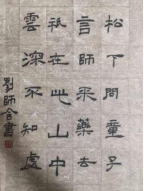 松下問童子
言師采藥去
祇在此山中
雲深不知處
劉師合書